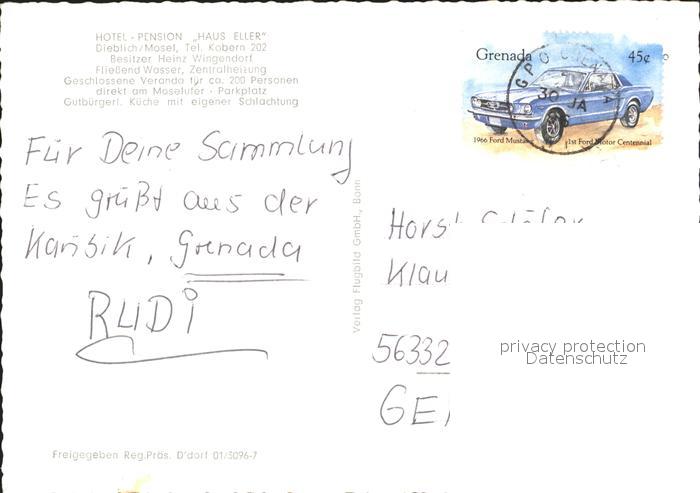 HOTEL - PENSION „HAUS ELLER"
Dieblich/Mosel, Tel. Kobern 202
Besitzer Heinz Wingendorf
Fließend Wasser, Zentralheizung
Geschlossene Veranda für ca. 200 Personen
direkt am Moselufer · Parkplatz
Gutbürgerl. Küche mit eigener Schlachtung
Grenada 45¢
GPO
30 JA
1966 Ford Mustang 1st Ford Motor Centennial
Für Deine Sammlung
Es grüßt aus der
Karibik, Grenada
RUDI
Verlag Flugbild GmbH., Bonn
Horst
Klau
56332
GE
privacy protection
Datenschutz
Freigegeben Reg.Präs. D'dorf 01/5096-7